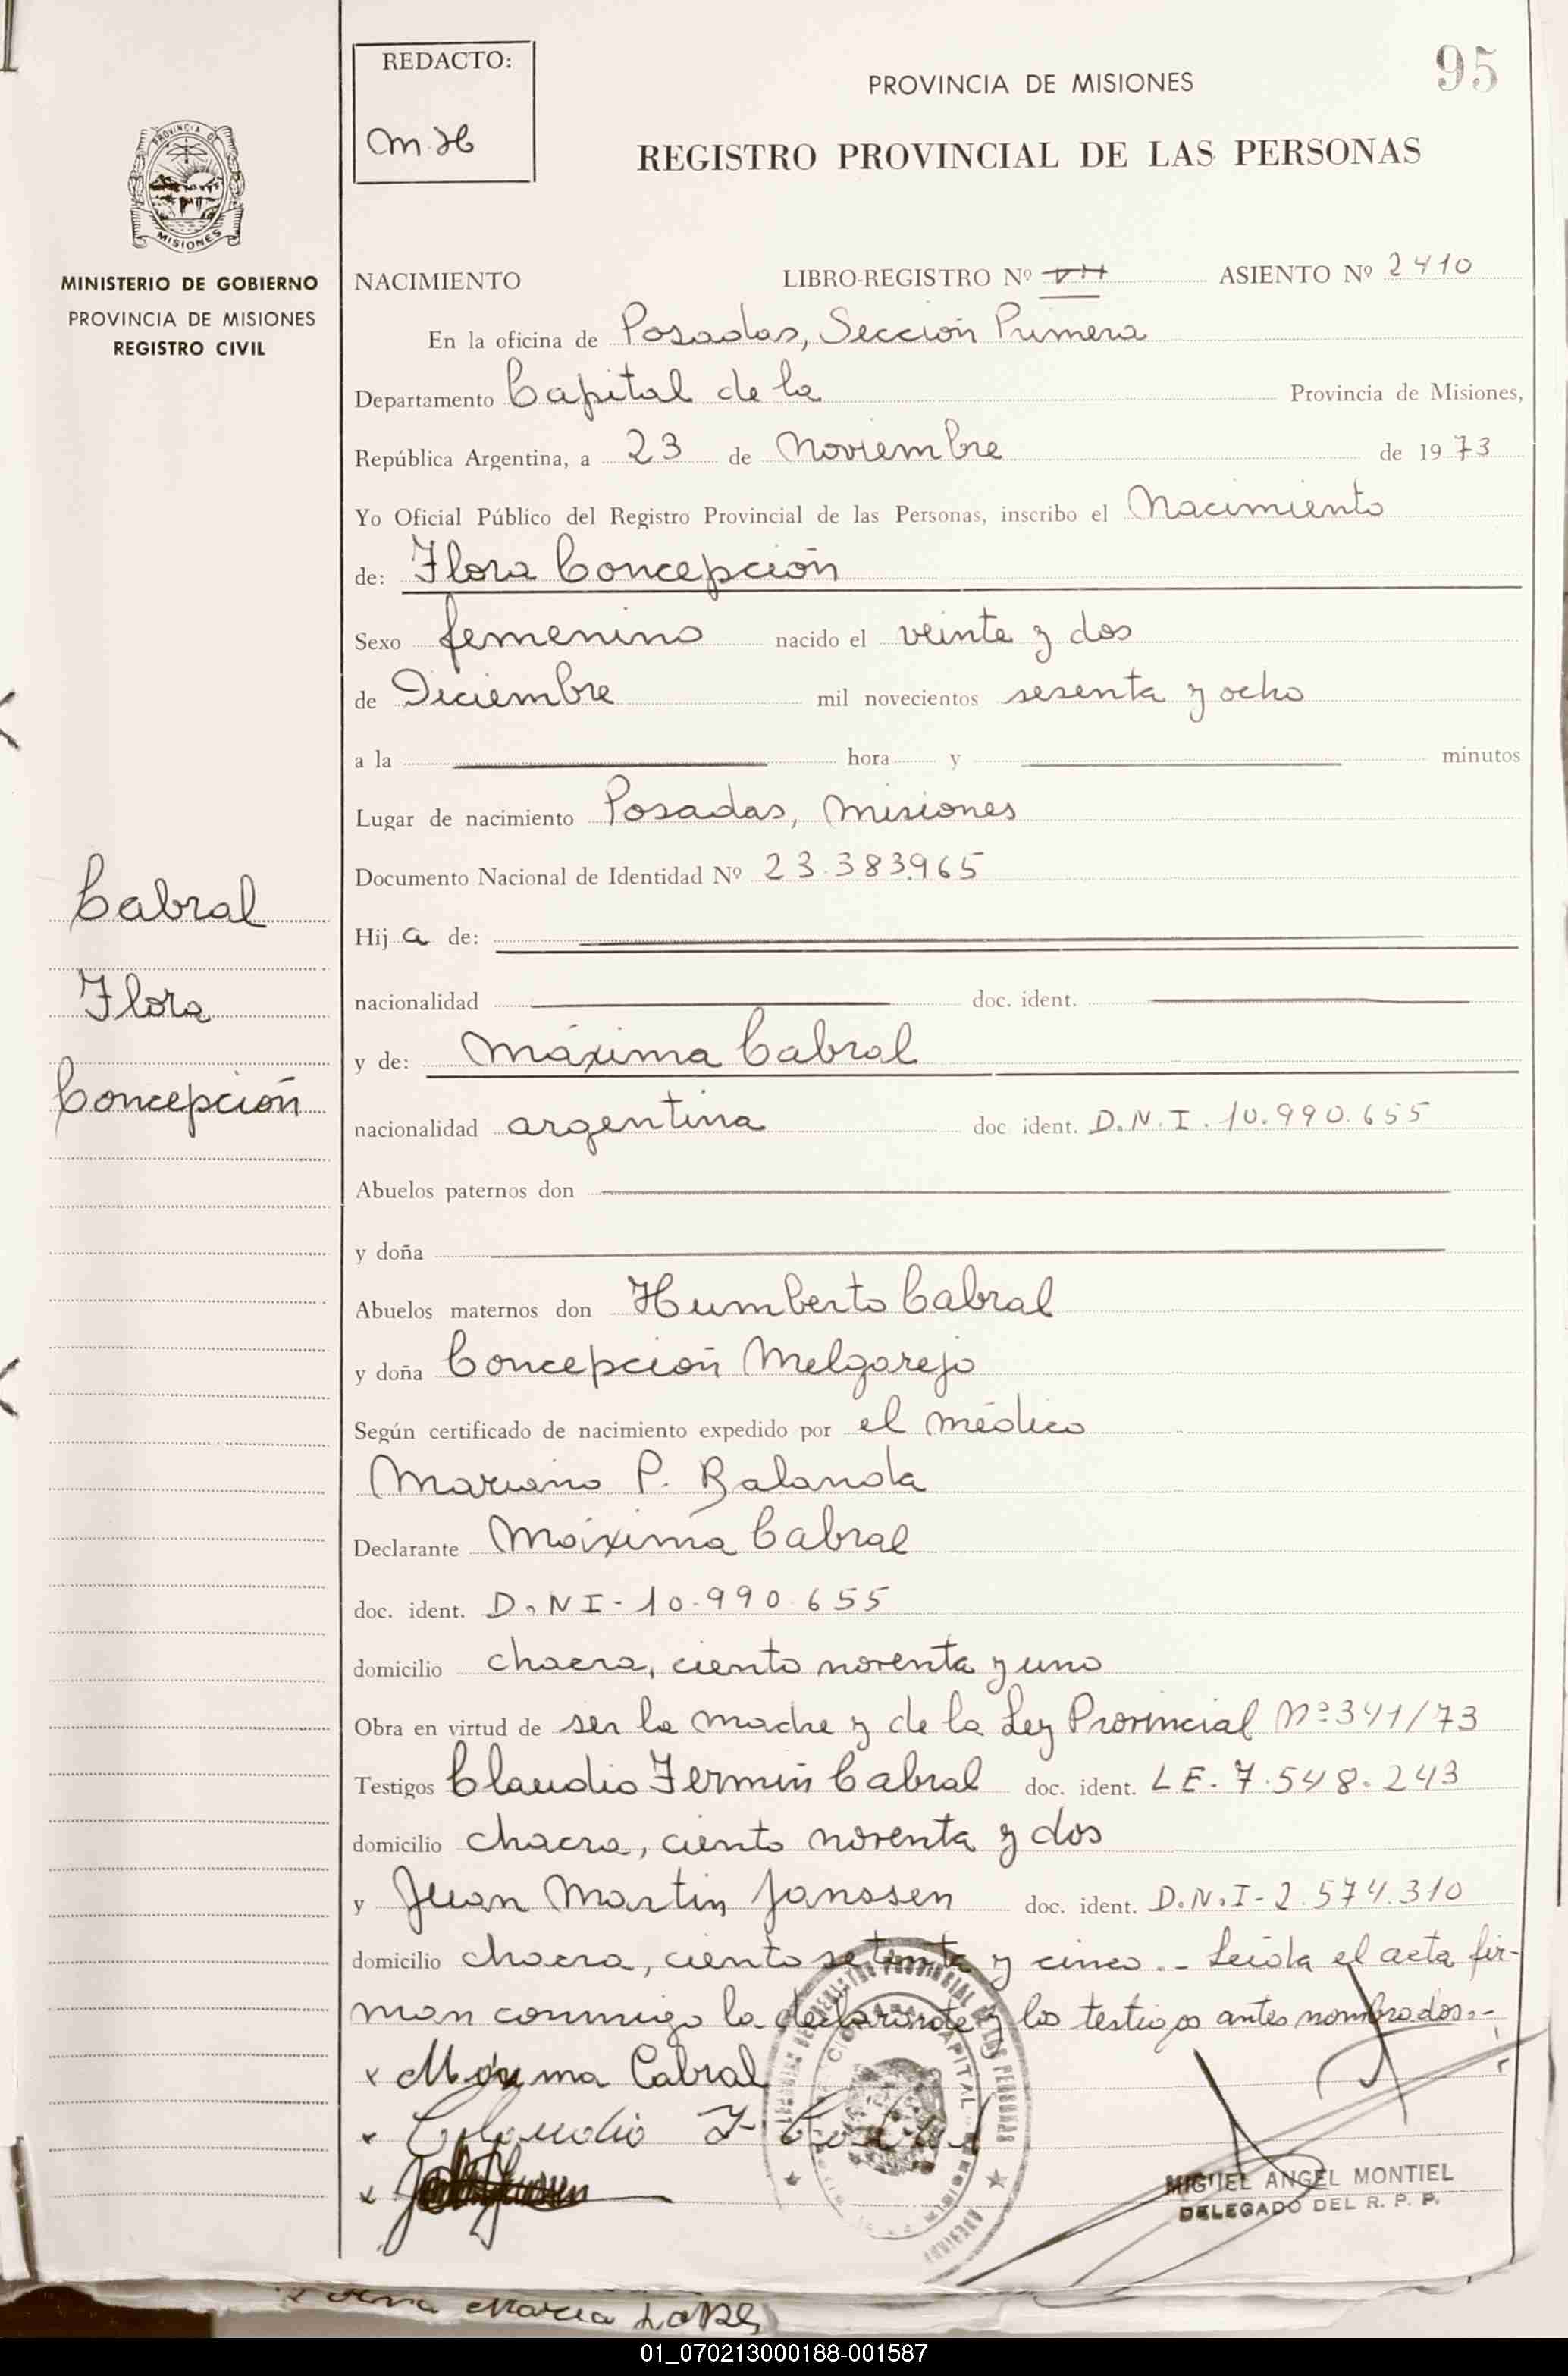 REDACTO:
M.H
PROVINCIA DE MISIONES
95
REGISTRO PROVINCIAL DE LAS PERSONAS
PROVINCIA DE
MISIONES
MINISTERIO DE GOBIERNO
PROVINCIA DE MISIONES
REGISTRO CIVIL
NACIMIENTO LIBRO-REGISTRO Nº VII ASIENTO Nº 2410
En la oficina de Posadas, Sección Primera
Departamento Capital de la Provincia de Misiones,
República Argentina, a 23 de Noviembre de 1973
Yo Oficial Público del Registro Provincial de las Personas, inscribo el Nacimiento
de: Flora Concepción
Sexo femenino nacido el veinte y dos
de Diciembre mil novecientos sesenta y ocho
a la hora y minutos
Lugar de nacimiento Posadas, Misiones
Documento Nacional de Identidad Nº 23.383.965
Cabral
Hija de:
Flora
nacionalidad doc. ident.
y de: Máxima Cabral
Concepción
nacionalidad argentina doc ident. D.N.I. 10.990.655
Abuelos paternos don
y doña
Abuelos maternos don Humberto Cabral
y doña Concepción Melgarejo
Según certificado de nacimiento expedido por el médico
Mariano P. Balanda
Declarante Máxima Cabral
doc. ident. D.NI-10.990.655
domicilio chacra, ciento noventa y uno
Obra en virtud de ser la madre y de la Ley Provincial Nº 341/73
Testigos Claudio Fermin Cabral doc. ident. LE. 7.548.243
domicilio chacra, ciento noventa y dos
y Juan Martin Janssen doc. ident. D.N.I-2.574.310
domicilio chacra, ciento setenta y cinco.- Leída el acta fir-
man conmigo la declarante y los testigos antes nombrados.-
x Máxima Cabral
x Claudio F. Cabral
x
MIGUEL ANGEL MONTIEL
DELEGADO DEL R. P. P.
Maria
01_070213000188-001587